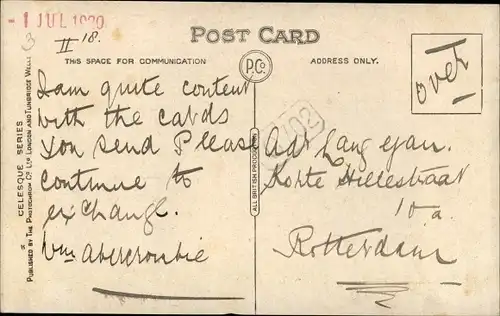 - 1 JUL 1920
3
II 18.
POST CARD
THIS SPACE FOR COMMUNICATION
P.Co.
ADDRESS ONLY.
over
CELESQUE SERIES
PUBLISHED BY THE PHOTOCHROM CO. LTD. LONDON AND TUNBRIDGE WELLS
ALL BRITISH PRODUCTION
I am quite content
with the cards
you send Please
continue to
exchange.
Wm Abercrombie
Adr Langejan.
Korte Hillestraat
10a
Rotterdam